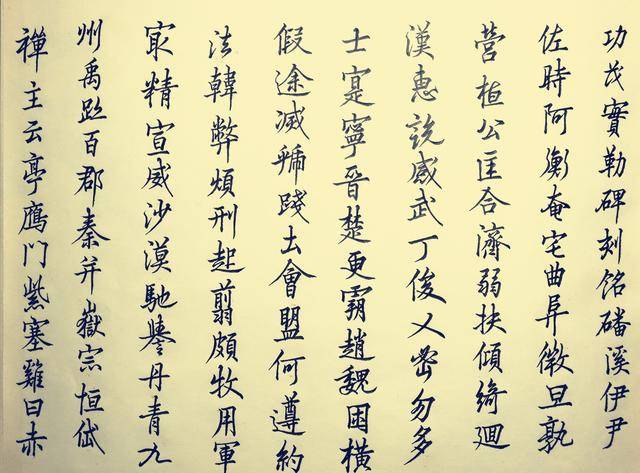 功茂實勒碑刻銘磻溪伊尹
佐時阿衡奄宅曲阜微旦孰
營桓公匡合濟弱扶傾綺廻
漢惠說感武丁俊乂密勿多
士寔寧晉楚更霸趙魏困橫
假途滅虢踐土會盟何遵約
法韓弊煩刑起翦頗牧用軍
㝡精宣威沙漠馳譽丹青九
州禹跡百郡秦并嶽宗恒岱
禪主云亭鴈門紫塞雞田赤